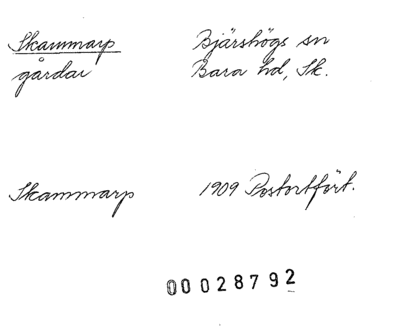 Skammarp Bjärshögs sn
gårdar Bara hd, Sk.
Skammarp 1909 Postortfört.
00028792